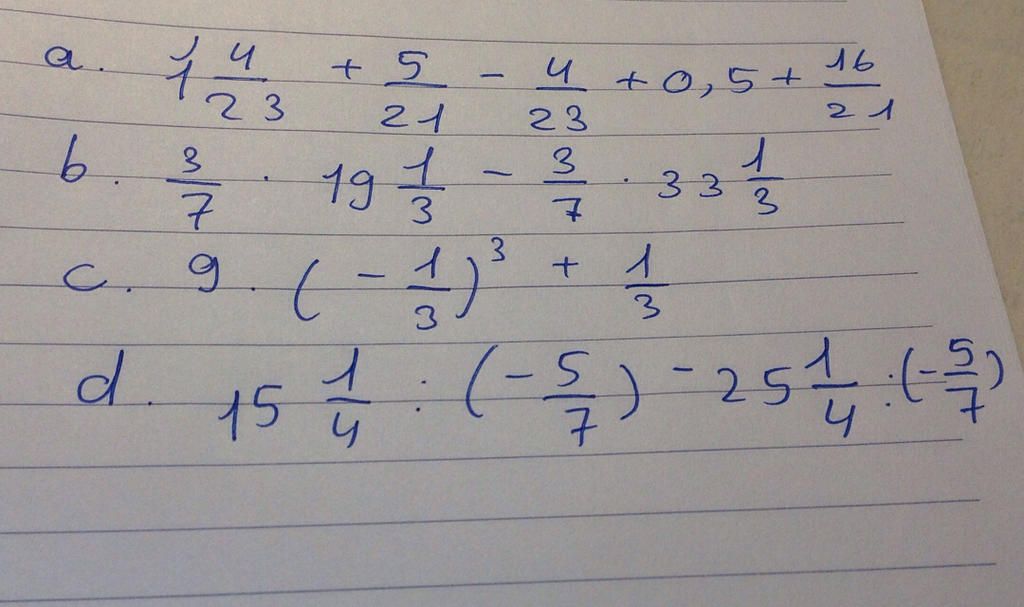 a. 1 4/23 + 5/21 - 4/23 + 0,5 + 16/21
b. 3/7 . 19 1/3 - 3/7 . 33 1/3
c. 9 . (-1/3)³ + 1/3
d. 15 1/4 : (-5/7) - 25 1/4 : (-5/7)